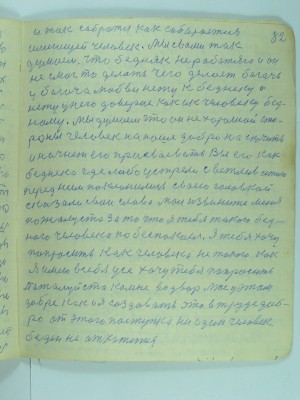 82
и так собрался как собирается
имеющей человек. Мы свами так
думаем. Что бедняк неработяго и он
не смог то делать чего делает богачь
у богача любви нету к бедняку и
нету у него доверие как к человеку бед-
ному. Мы думаем что он не хорошой сто-
роны человек на наше добро на
и начнет его присваевать Вы его как
бедного где либо устрели с
перед ним поклонились своею головкой
сказали свои слова мол извените меня
пожалуста за то что я тебя такого бед-
ного человека побеспокоил. Я тебя хочу
попросить как человека не только как
Я имею всебя уся хочу тебя попросить
пожалуйста ко мне во двор. Мы этим
добре как и я создавать это в труде доб-
ро от этого поступка ни один человек
беден не откажется